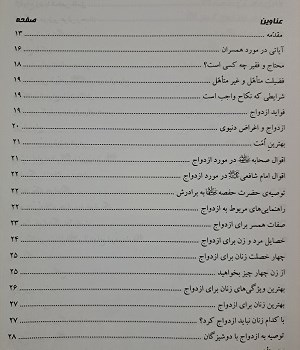 عناوین صفحه
مقدمه ۱۳
آیاتی در مورد همسران ۱۶
محتاج و فقیر چه کسی است؟ ۱۸
فضیلت متأهل و غیر متأهل ۱۹
شرایطی که نکاح واجب است ۱۹
فواید ازدواج ۱۹
ازدواج و اغراض دنیوی ۲۰
بهترین اُمّت ۲۱
اقوال صحابه در مورد ازدواج ۲۱
اقوال امام شافعی در مورد ازدواج ۲۲
توصیه‌ی حضرت حفصه به برادرش ۲۲
راهنمایی‌های مربوط به ازدواج ۲۲
صفات همسر برای ازدواج ۲۳
خصایل مرد و زن برای ازدواج ۲۴
چهار خصلت زنان برای ازدواج ۲۵
از زن چهار چیز بخواهید ۲۵
بهترین ویژگی‌های زنان برای ازدواج ۲۶
بهترین زنان برای ازدواج ۲۷
با کدام زنان نباید ازدواج کرد؟ ۲۷
توصیه به ازدواج با دوشیزگان ۲۸